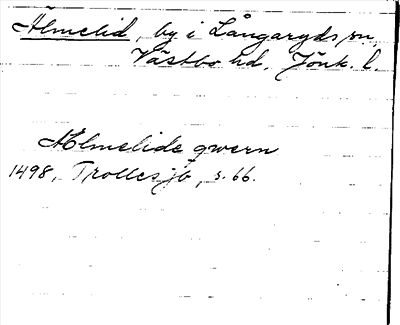 Älmelid, by i Långaryds sn,
Västbo hd. Jönk. l.
Ælmelide qwern
1498, Trollesjb, s. 66.